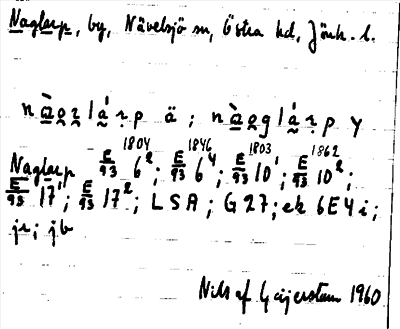 Naglarp, by, Nävelsjö sn, Östra hd, Jönk. l.
Naglarp E 93 6² 1804; E 93 6⁴ 1846; E 93 10¹ 1803; E 93 10² 1862;
E 93 17¹; E 93 17²; LSA; G27; ek 6E4i;
jr; jb
Nils af Geijerstam 1960